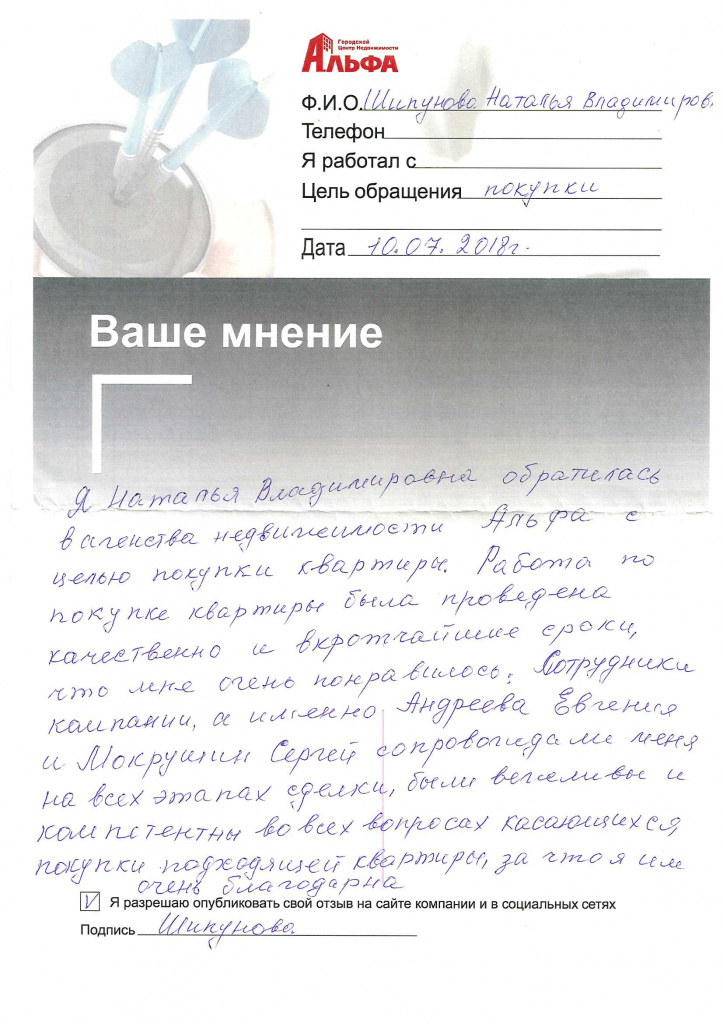 Городской
Центр Недвижимости
АЛЬФА
Ф.И.О. Шипунова Наталья Владимиров
Телефон
Я работал с
Цель обращения покупки
Дата 10.07.2018г.
Ваше мнение
Я Наталья Владимировна обратилась
в агенства недвижимости Альфа с
целью покупки квартиры. Работа по
покупке квартиры была проведена
качественно и вкротчайшие сроки,
что мне очень понравилось. Сотрудники
компании, а именно Андреева Евгения
и Мокрушин Сергей сопровождали меня
на всех этапах сделки, были вежливы и
компетентны во всех вопросах касающихся,
покупки подходящей квартиры, за что я им
очень благодарна
V Я разрешаю опубликовать свой отзыв на сайте компании и в социальных сетях
Подпись Шипунова